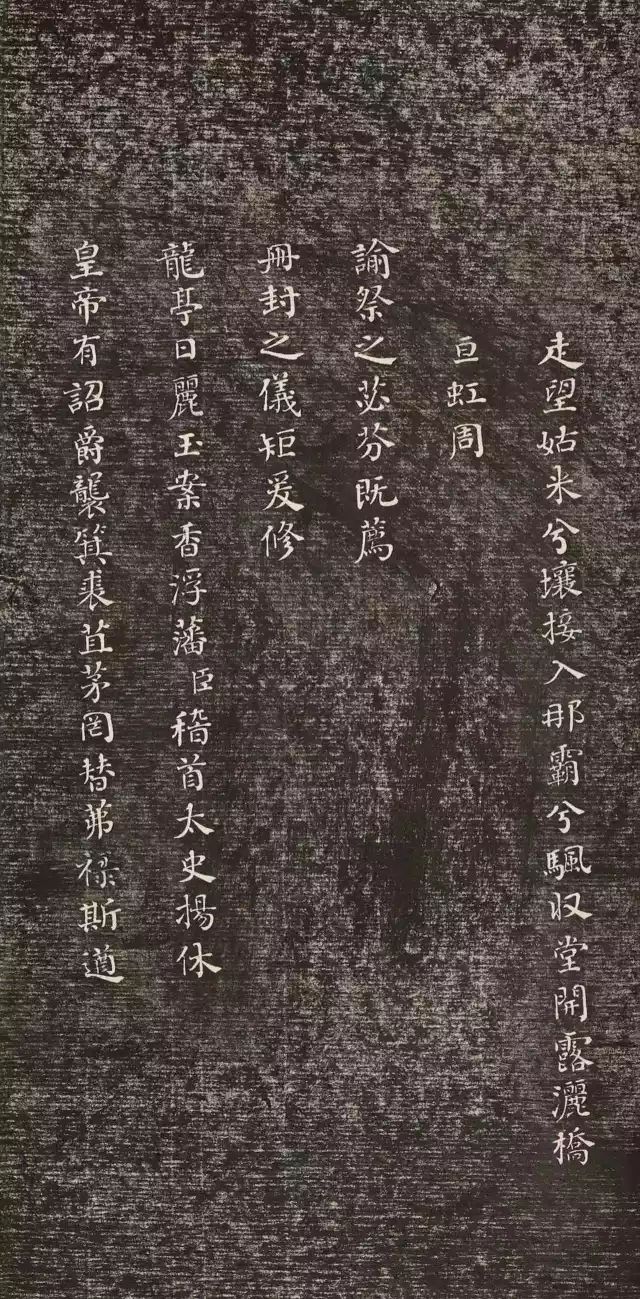 走望姑米兮壤接入那霸兮颿収堂開露灑橋
亘虹周
諭祭之苾芬旣薦
冊封之儀矩爰修
龍亭日麗玉案香浮藩臣稽首太史揚休
皇帝有詔爵襲箕裘苴茅罔替茀祿斯遒